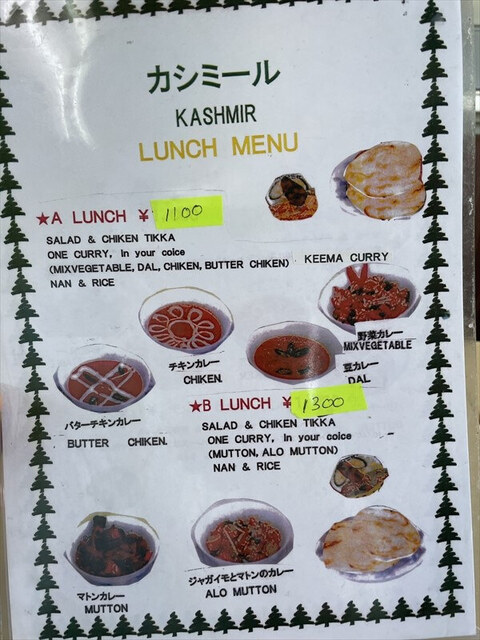 カシミール
KASHMIR
LUNCH MENU
★A LUNCH ¥ 1100
SALAD & CHIKEN TIKKA
ONE CURRY, in your coice
(MIXVEGETABLE, DAL, CHIKEN, BUTTER CHIKEN)
NAN & RICE
KEEMA CURRY
野菜カレー
MIXVEGETABLE
チキンカレー
CHIKEN
豆カレー
DAL
バターチキンカレー
BUTTER CHIKEN.
★B LUNCH ¥ 1300
SALAD & CHIKEN TIKKA
ONE CURRY, in your coice
(MUTTON, ALO MUTTON)
NAN & RICE
マトンカレー
MUTTON
ジャガイモとマトンのカレー
ALO MUTTON